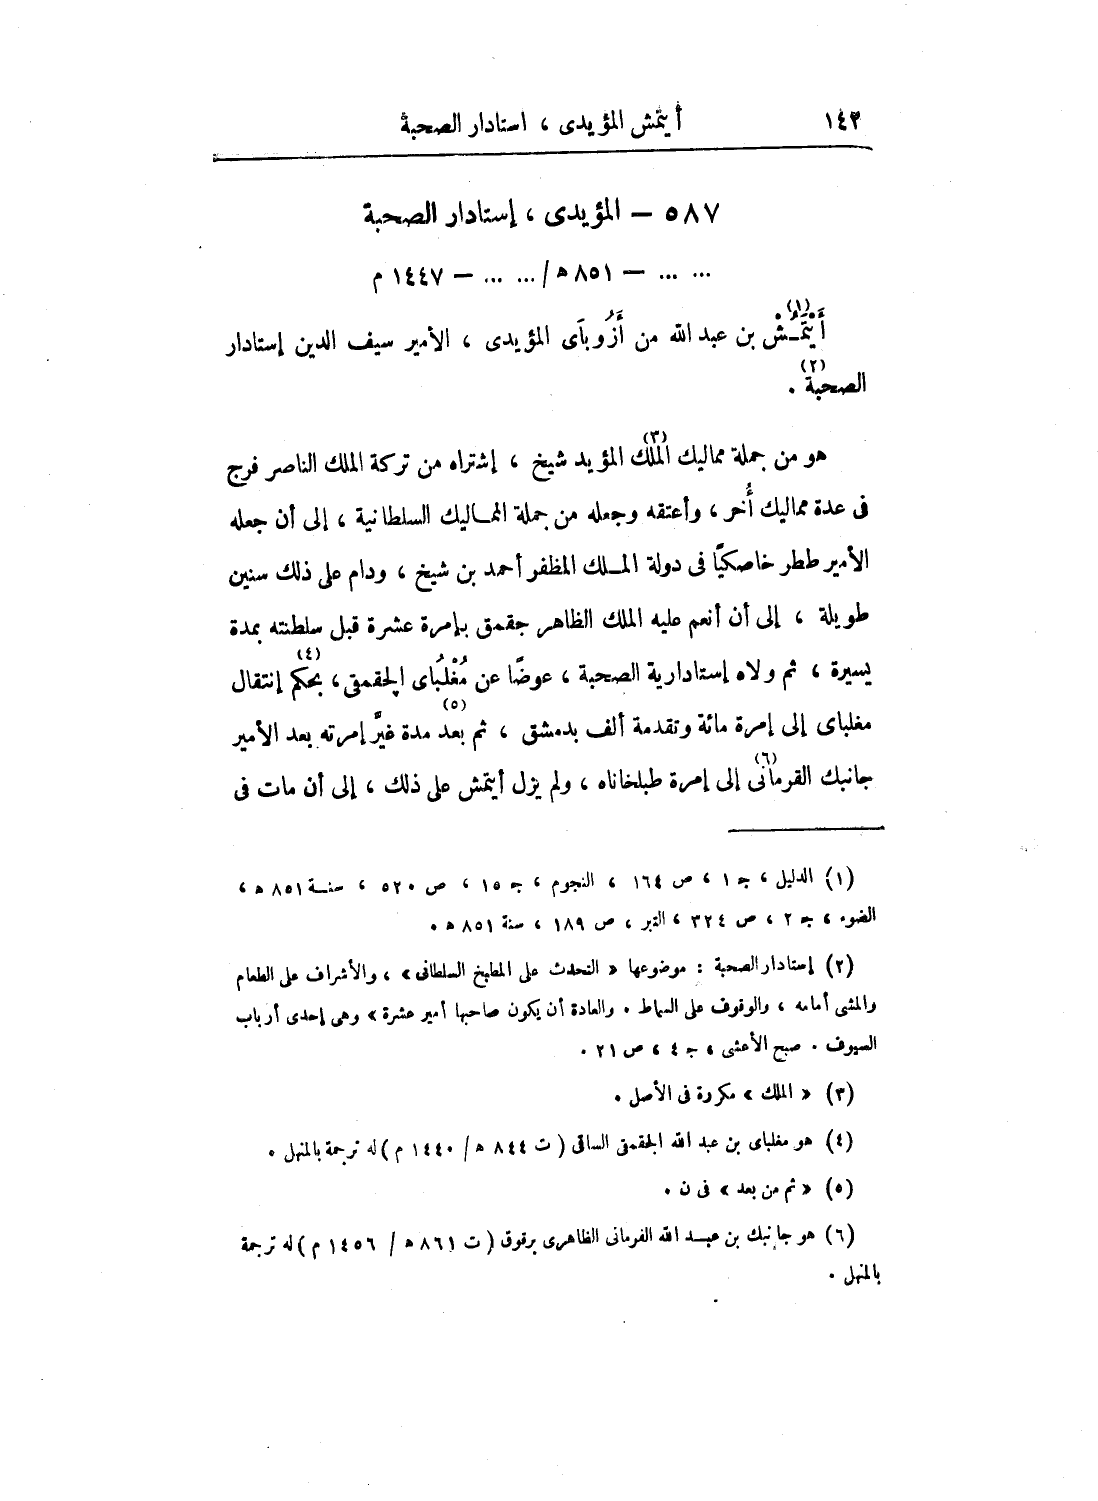 ١٤٢ أيتمش المؤيدى ، استادار الصحبة
٥٨٧ – المؤيدى ، إستادار الصحبة
... ... – ٨٥١ ه / ... ... – ١٤٤٧ م
أَيْتَمُـش (١) بن عبد الله من أَزُوبَاى المؤيدى ، الأمير سيف الدين إستادار
الصحبة (٢) .
هو من جملة مماليك الملك (٣) المؤيد شيخ ، إشتراه من تركة الملك الناصر فرج
فى عدة مماليك أُخر ، وأعتقه وجعله من جملة الممـاليك السلطانية ، إلى أن جعله
الأمير ططر خاصكيًّا فى دولة المـلك المظفر أحمد بن شيخ ، ودام على ذلك سنين
طويلة ، إلى أن أنعم عليه الملك الظاهر جقمق بإمرة عشرة قبل سلطنته بمدة
يسيرة ، ثم ولاه إستادارية الصحبة ، عوضًا عن مُغْلُباى الجقمقى (٤) ، بحكم إنتقال
مغلباى إلى إمرة مائة وتقدمة ألف بدمشق ، ثم بعد (٥) مدة غيَّر إمرته بعد الأمير
جانبك القرمانى (٦) إلى إمرة طبلخاناه ، ولم يزل أيتمش على ذلك ، إلى أن مات فى
(١) الدليل ، جـ ١ ، ص ١٦٤ ، النجوم ، جـ ١٥ ، ص ٥٢٠ ، سنـة ٨٥١ ه ،
الضوء ، جـ ٢ ، ص ٣٢٤ ، التبر ، ص ١٨٩ ، سنة ٨٥١ ه .
(٢) إستادار الصحبة : موضوعها « التحدث على المطبخ السلطانى » ، والأشراف على الطعام
والمشى أمامه ، والوقوف على السماط . والعادة أن يكون صاحبها أمير عشرة » وهى إحدى أرباب
السيوف . صبح الأعشى ، جـ ٤ ، ص ٢١ .
(٣) « الملك » مكررة فى الأصل .
(٤) هو مغلباى بن عبد الله الجقمقى الساقى ( ت ٨٤٤ ه / ١٤٤٠ م ) له ترجمة بالمنهل .
(٥) « ثم من بعد » فى ن .
(٦) هو جانبك بن عبـد الله القرمانى الظاهرى برقوق ( ت ٨٦١ ه / ١٤٥٦ م ) له ترجمة
بالمنهل .